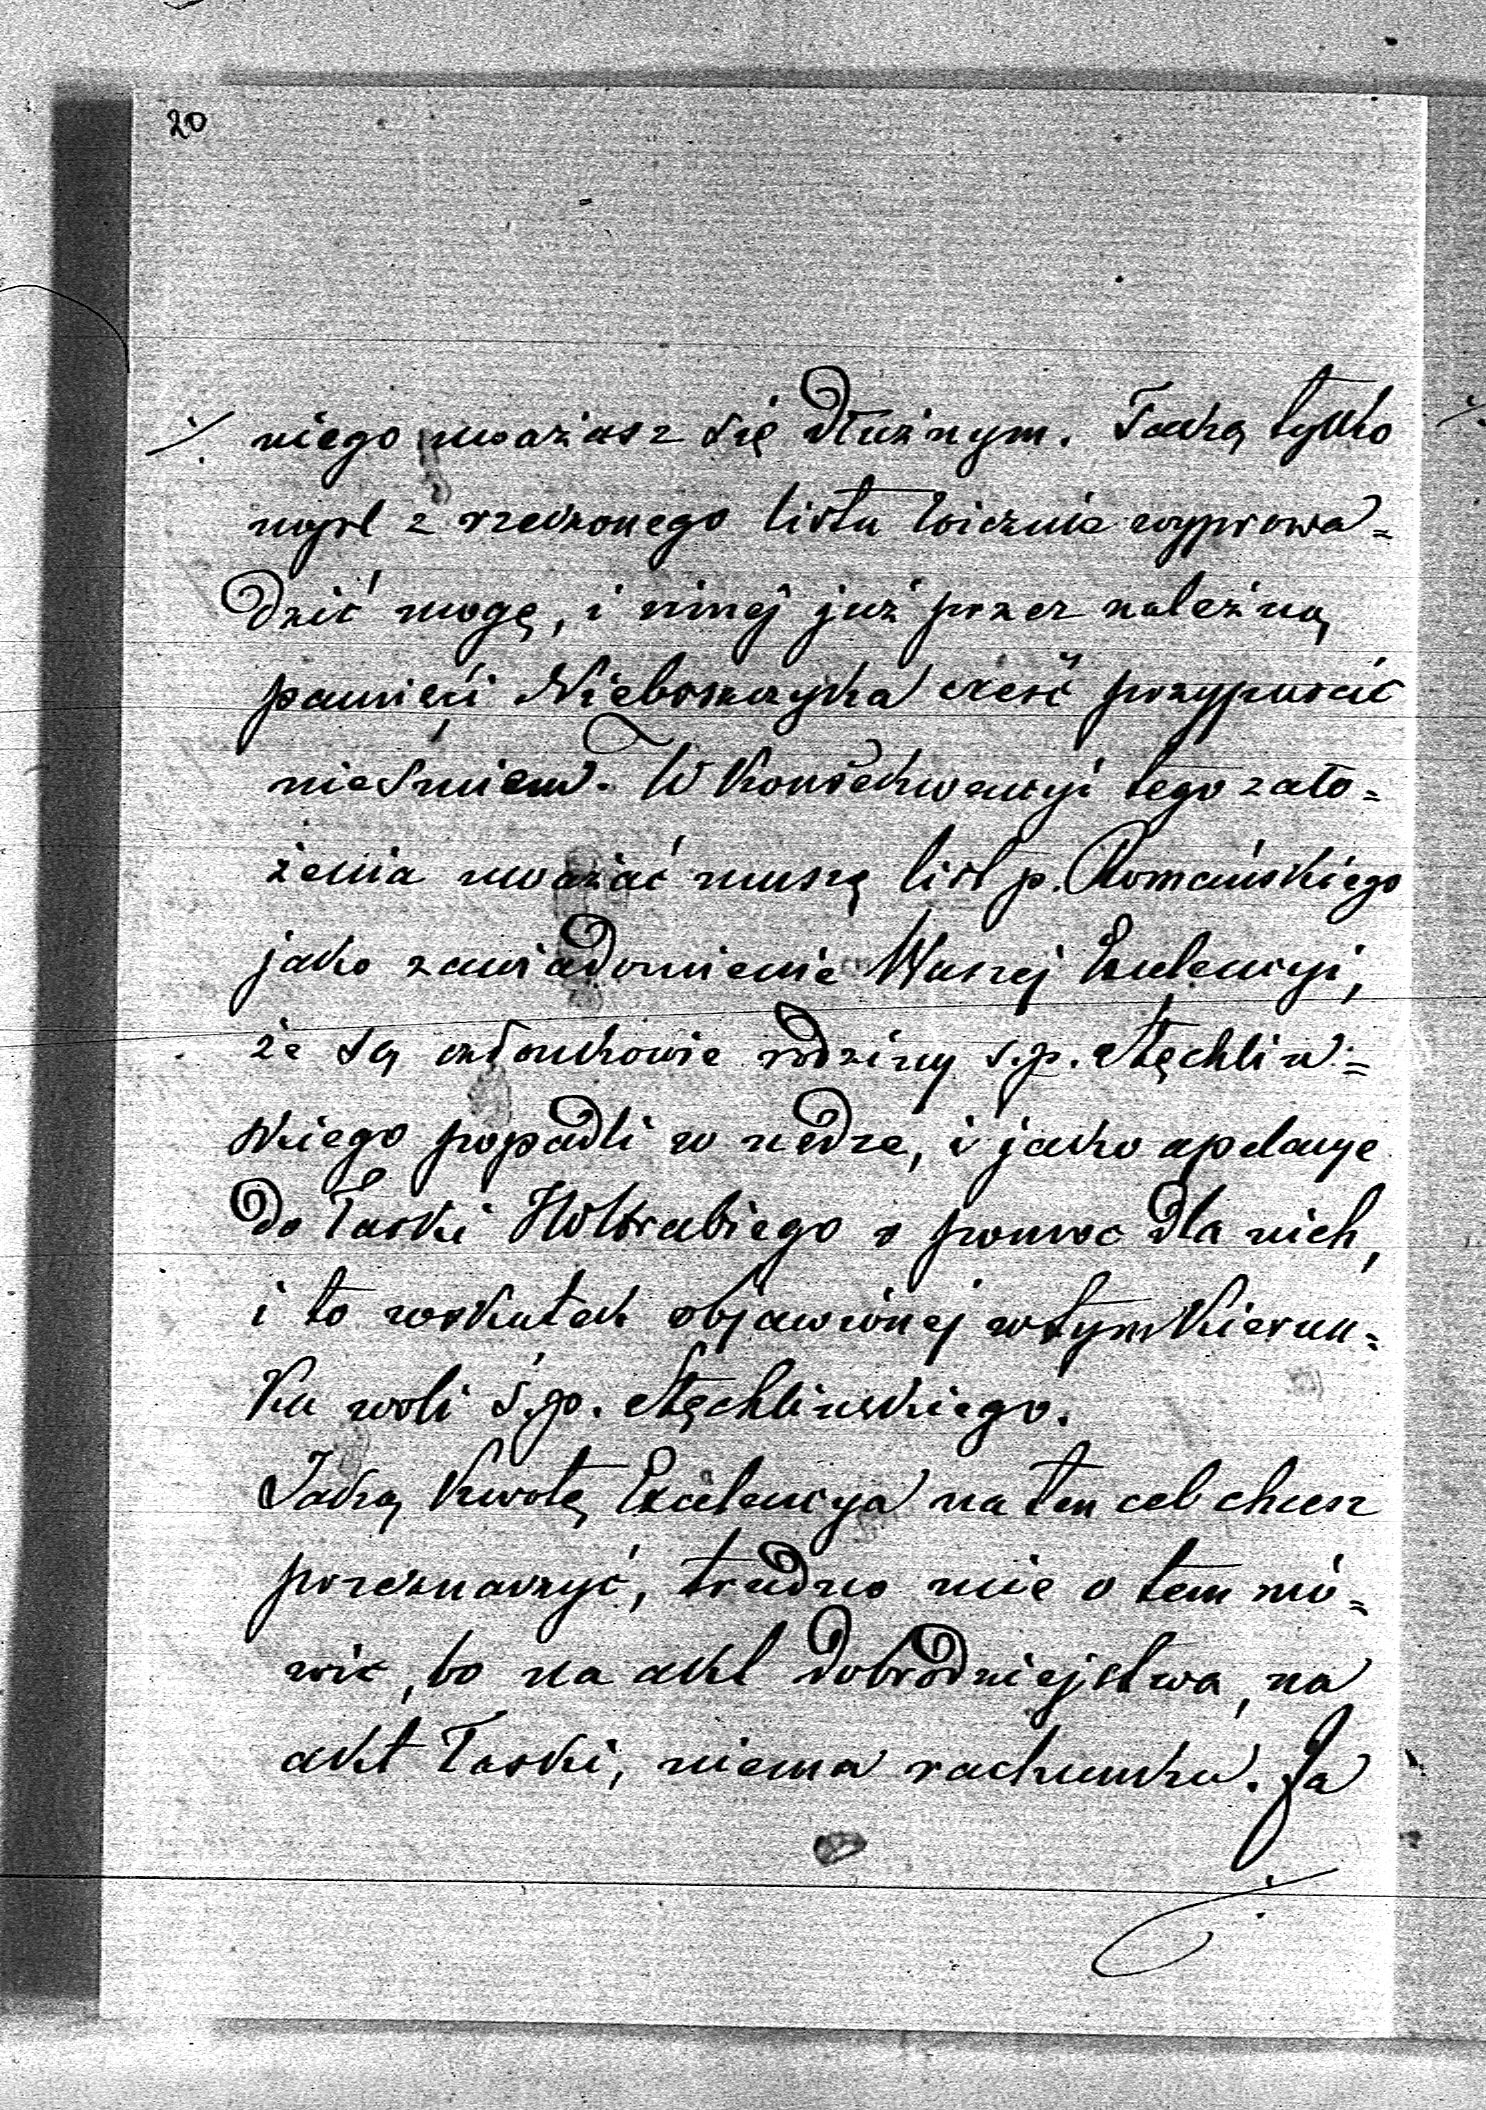 20
niego uważasz się dłużnym. Taką tylko
myśl z rzeczonego listu logicznie wyprowa=
dzić mogę, i innej już przez należną
pamięci Nieboszczyka cześć przypuścić
nieśmiem. W Konsekwencyi tego zało=
żenia uważać muszę list p. Romańskiego
jako zawiadomienie Waszej Excelencyi,
że są członkowie rodziny ś.p. Stęchliń=
skiego popadli w nędzę, i jako apelacye
do Łaski JWHrabiego o pomoc dla nich,
i to wskutek objawionej w tym Kierun=
Ku woli ś.p. Stęchlinskiego.
Jaką Kwotę Excelencya na ten cel chcesz
przeznaczyć, trudno mie o tem mó=
wić, bo na akt dobrodziejstwa, na
akt Łaski, niema rachunku. Ja